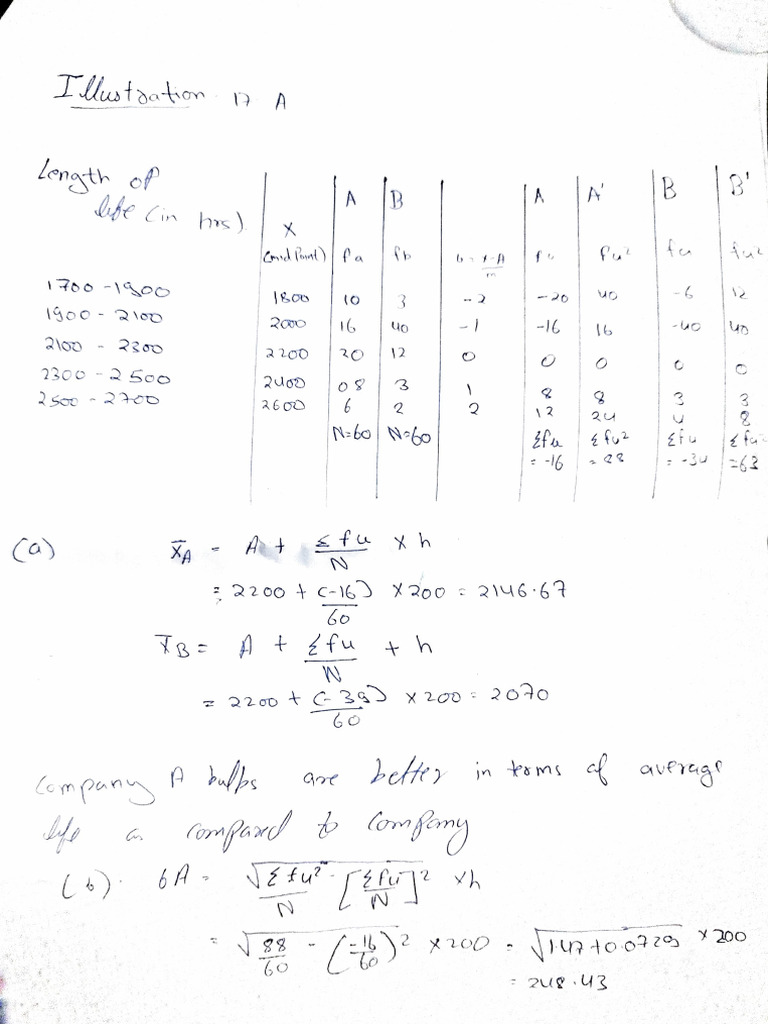 Illustration 17 A
Length of life (in hrs) | X (mid Point) | A fa | B fb | u = x-A/m | A fu | A' fu² | B fu | B' fu²
1700 - 1900 | 1800 | 10 | 3 | -2 | -20 | 40 | -6 | 12
1900 - 2100 | 2000 | 16 | 40 | -1 | -16 | 16 | -40 | 40
2100 - 2300 | 2200 | 20 | 12 | 0 | 0 | 0 | 0 | 0
2300 - 2500 | 2400 | 08 | 3 | 1 | 8 | 8 | 3 | 3
2500 - 2700 | 2600 | 6 | 2 | 2 | 12 | 24 | 4 | 8
N=60 | N=60 | Σfu = -16 | Σfu² = 88 | Σfu = -39 | Σfu² = 63
(a) X̄A = A + Σfu/N × h
= 2200 + (-16)/60 × 200 = 2146.67
X̄B = A + Σfu/N + h
= 2200 + (-39)/60 × 200 = 2070
Company A bulbs are better in terms of average
life as compared to Company
(b). 6A = √Σfu²/N - [Σfu/N]² × h
= √88/60 - (-16/60)² × 200 = √1.47+0.0729 × 200
= 248.43